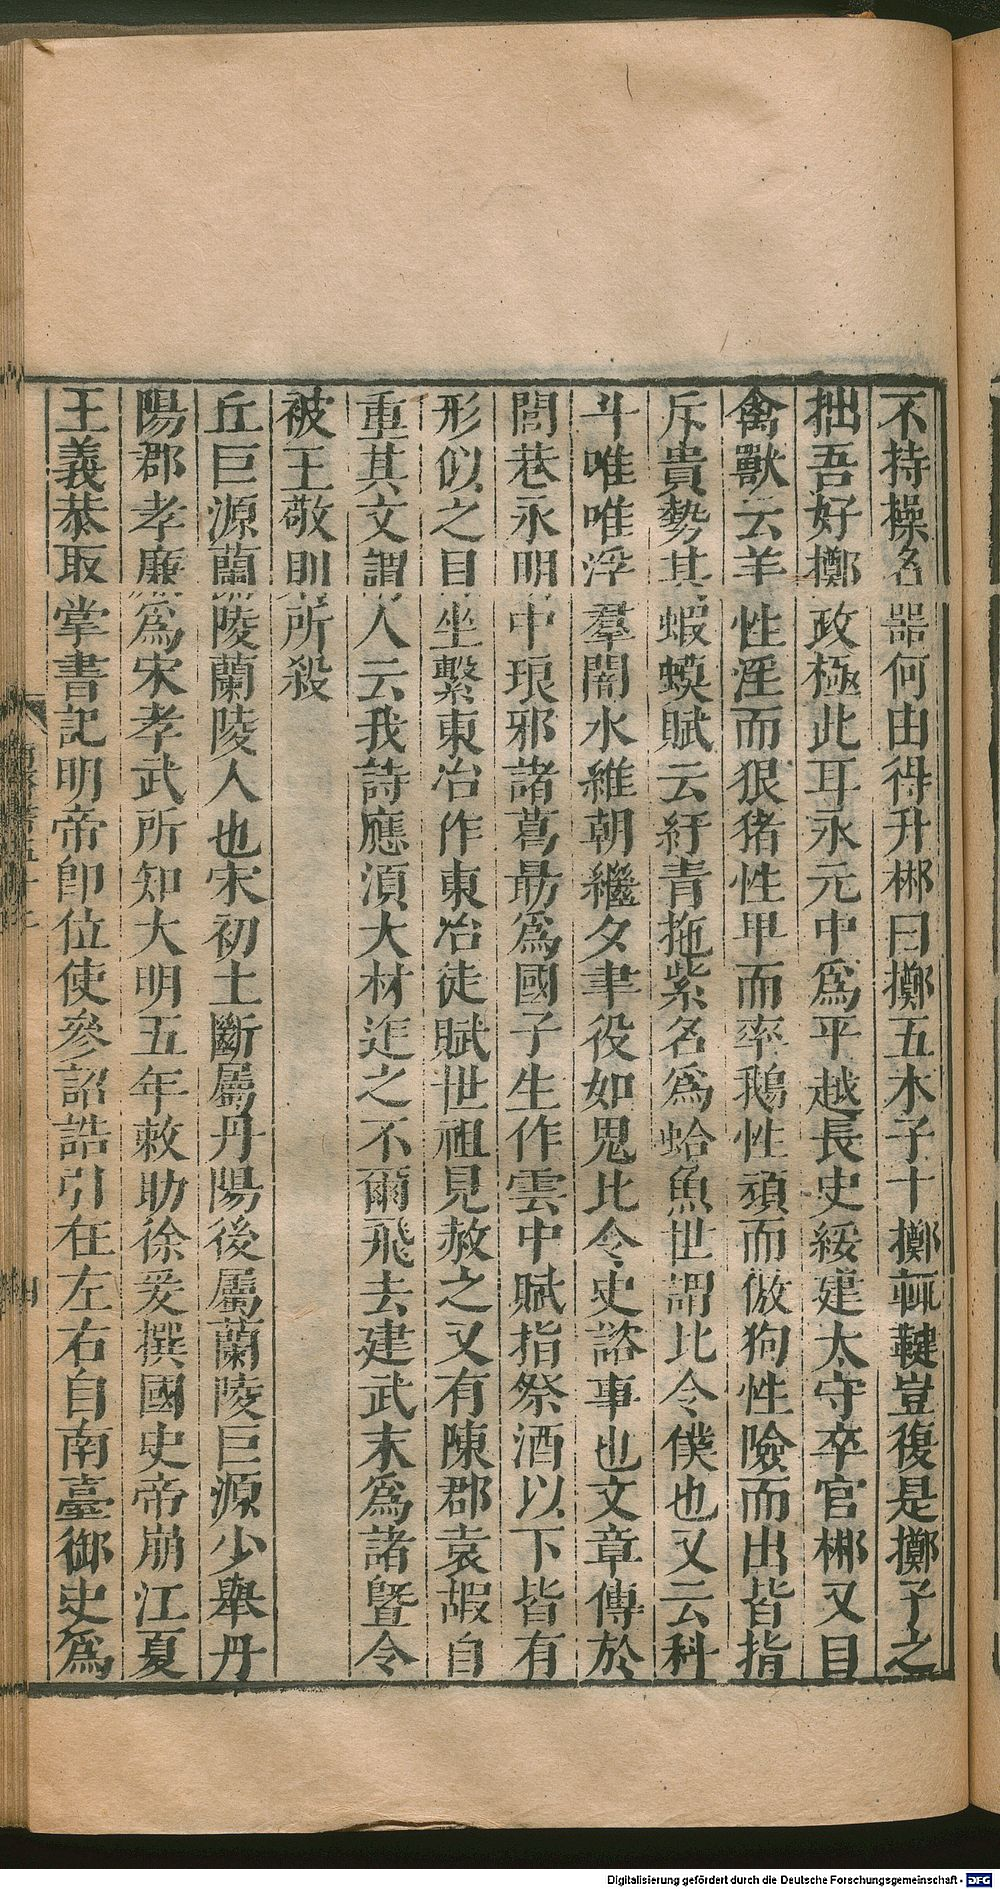 不持操名器何由得升彬曰擲五木子十擲輒鞬豈復是擲子之
拙吾好擲政極此耳永元中爲平越長史綏建太守卒官彬又目
禽獸云羊性淫而狠猪性卑而率鵝性頑而傲狗性險而出皆指
斥貴勢其蝦蟆賦云紆青拖紫名爲蛤魚世謂比令僕也又云科
斗唯唯浮羣闇水維朝繼夕聿役如鬼比令史諮事也文章傳於
閭巷永明中琅邪諸葛勗爲國子生作雲中賦指祭酒以下皆有
形似之目坐繫東冶作東冶徒賦世祖見赦之又有陳郡袁嘏自
重其文謂人云我詩應須大材迮之不爾飛去建武末爲諸曁令
被王敬則所殺
丘巨源蘭陵蘭陵人也宋初土斷屬丹陽後屬蘭陵巨源少舉丹
陽郡孝廉爲宋孝武所知大明五年敕助徐爰撰國史帝崩江夏
王義恭取掌書記明帝卽位使參詔誥引在左右自南臺御史爲
Digitalisierung gefördert durch die Deutsche Forschungsgemeinschaft - DFG